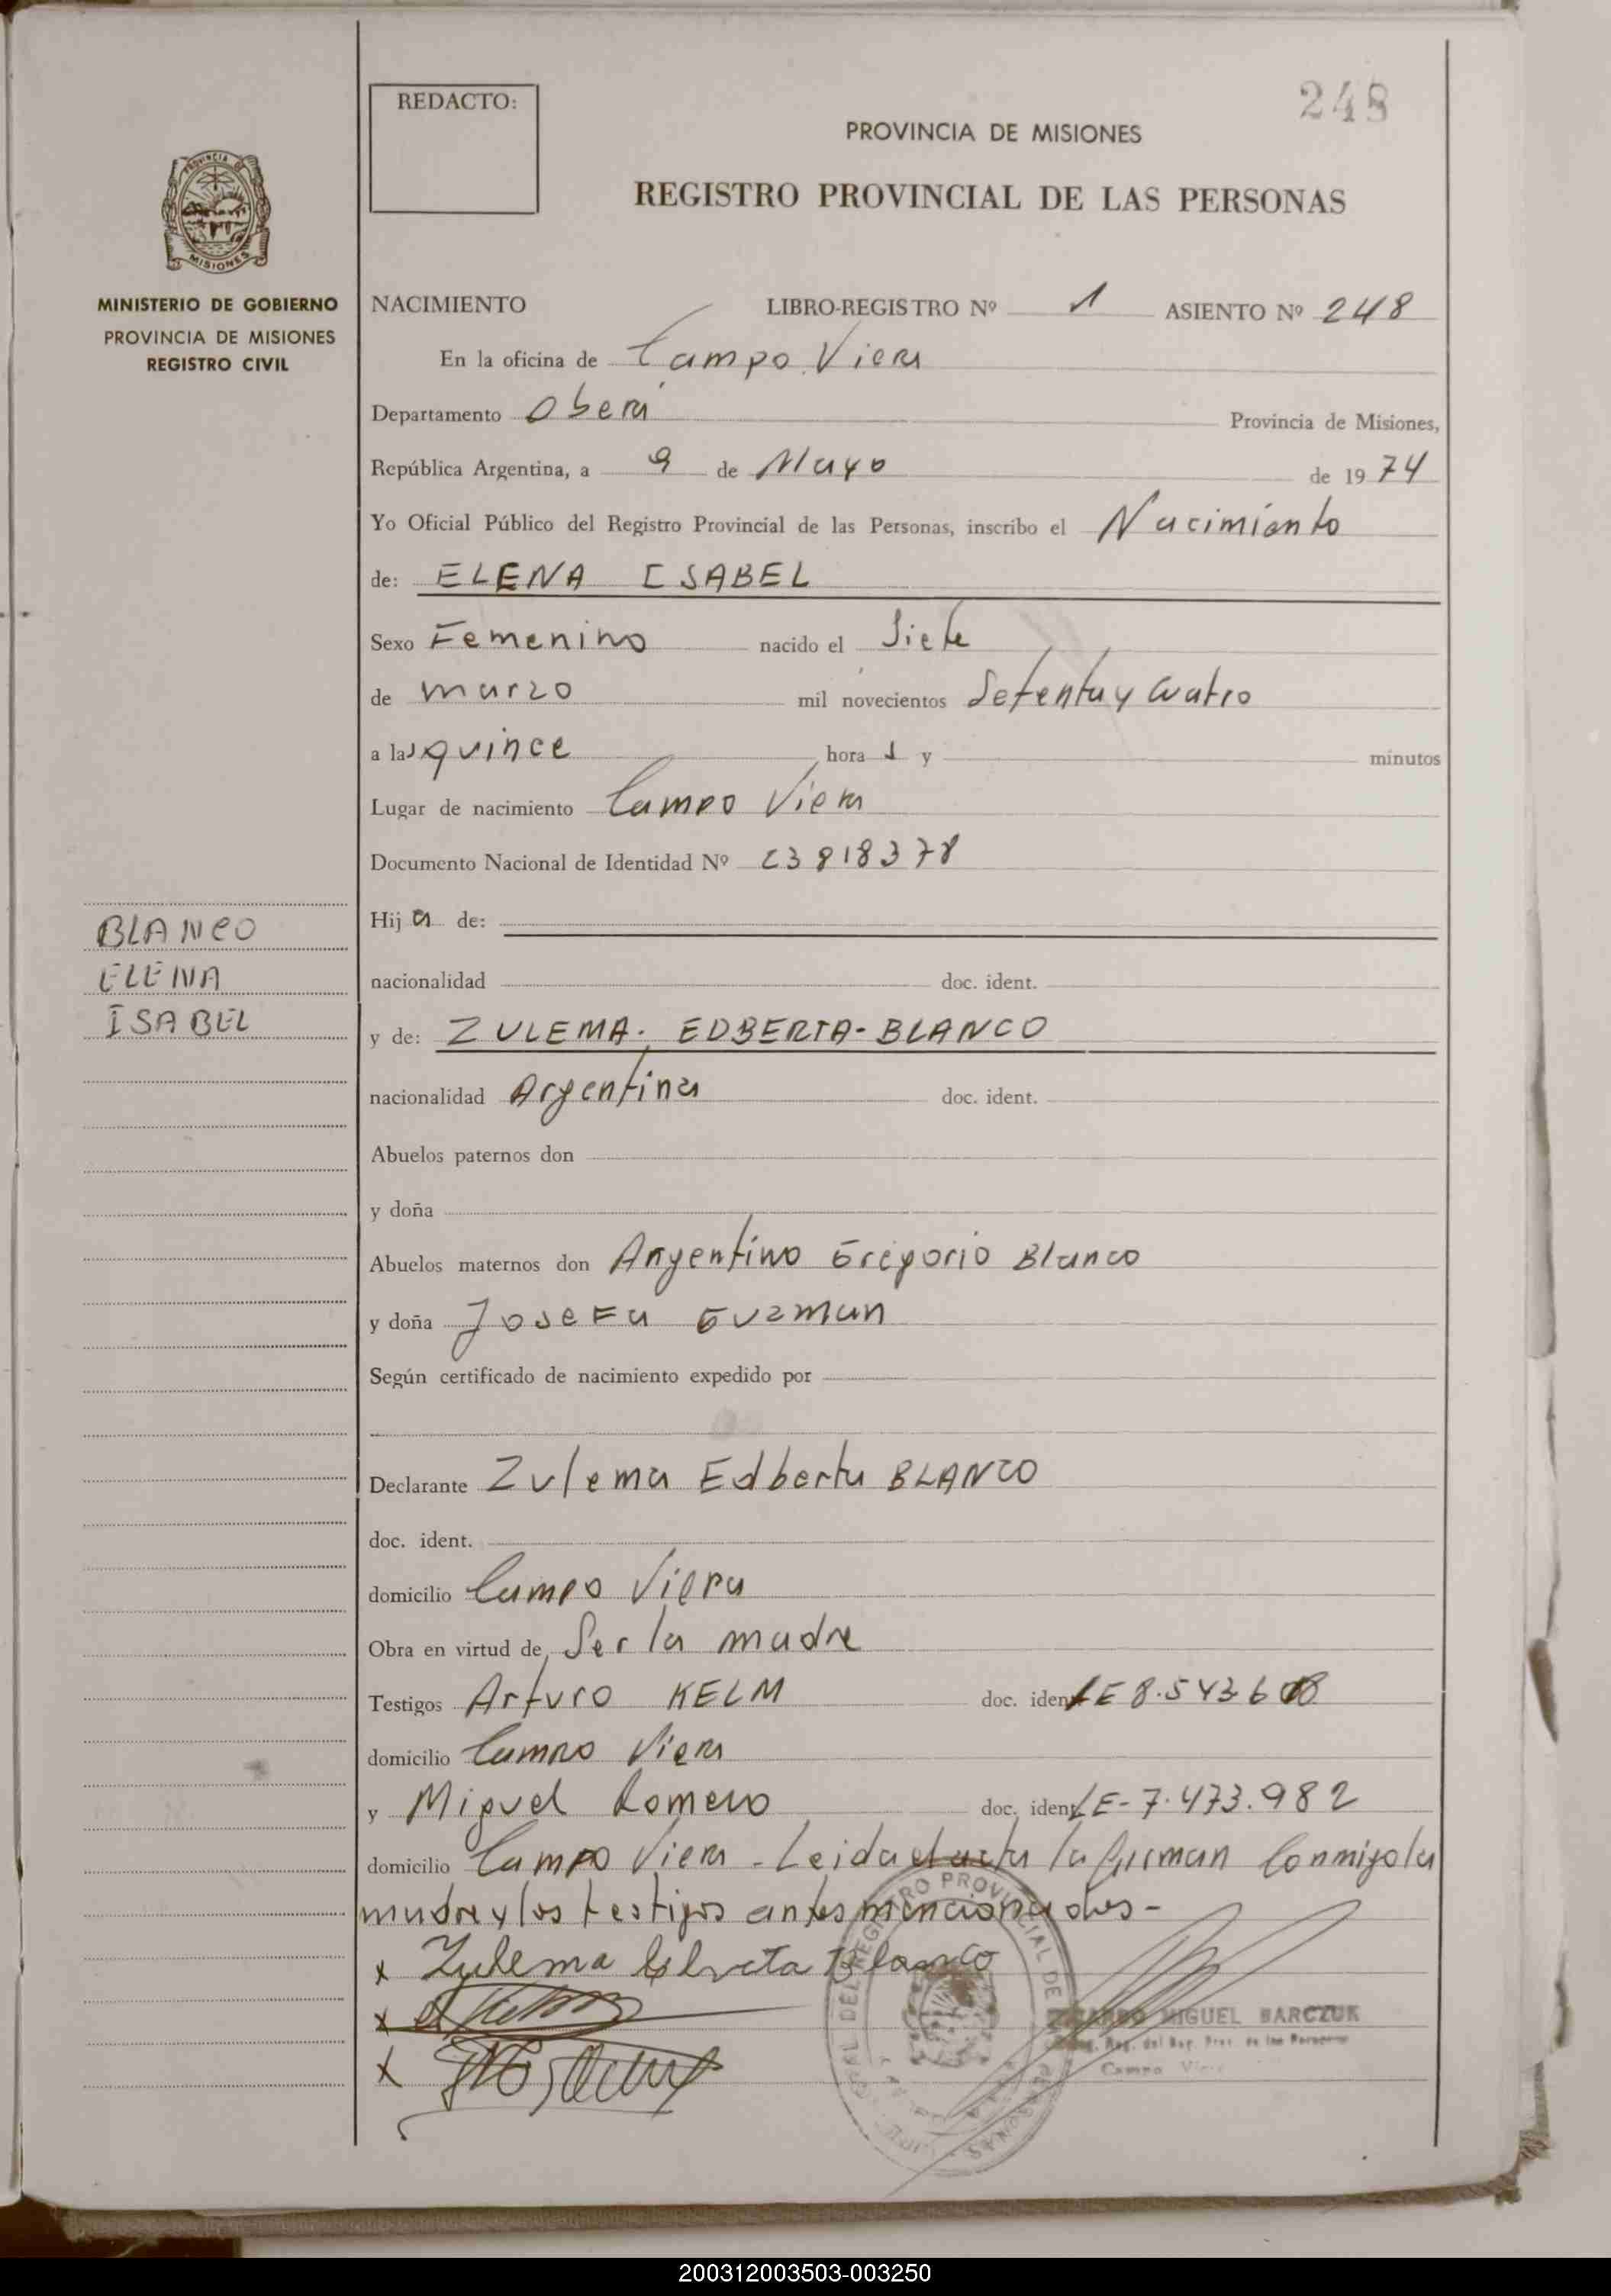 REDACTO:
248
PROVINCIA DE MISIONES
REGISTRO PROVINCIAL DE LAS PERSONAS
PROVINCIA DE
MISIONES
MINISTERIO DE GOBIERNO
PROVINCIA DE MISIONES
REGISTRO CIVIL
NACIMIENTO LIBRO-REGISTRO Nº 1 ASIENTO Nº 248
En la oficina de Campo Viera
Departamento Oberá Provincia de Misiones,
República Argentina, a 9 de Mayo de 1974
Yo Oficial Público del Registro Provincial de las Personas, inscribo el Nacimiento
de: ELENA ISABEL
Sexo Femenino nacido el Siete
de marzo mil novecientos Setenta y Cuatro
a las quince hora s y minutos
Lugar de nacimiento Campo Viera
Documento Nacional de Identidad Nº 23818378
Hij a de:
nacionalidad doc. ident.
BLANCO
ELENA
ISABEL
y de: ZULEMA. EDBERTA-BLANCO
nacionalidad Argentina doc. ident.
Abuelos paternos don
y doña
Abuelos maternos don Argentino Gregorio Blanco
y doña JoseFa Guzman
Según certificado de nacimiento expedido por
Declarante Zulema Edberta BLANCO
doc. ident.
domicilio Campo Viera
Obra en virtud de Ser la madre
Testigos Arturo KELM doc. ident LE 8.543.6
domicilio Campo Viera
y Miguel Romero doc. ident LE-7.473.982
domicilio Campo Viera - Leida el acta la firman Conmigo la
madre y los testigos antes mencionados-
x Zulema Blanco
x
x
MIGUEL BARCZUK
Reg. del Reg. Prov. de las Personas
Campo Viera
200312003503-003250